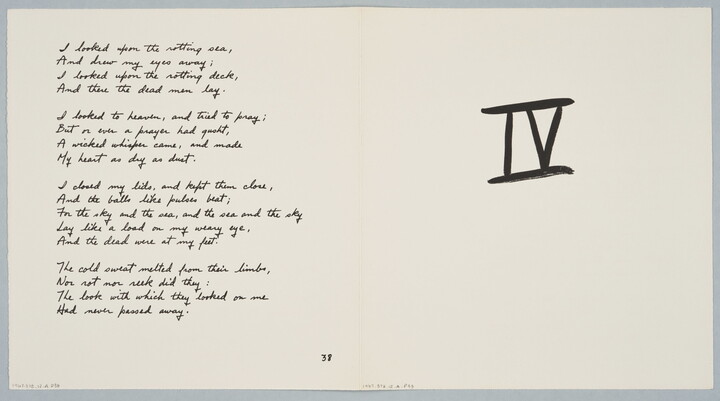 I looked upon the rotting sea,
And drew my eyes away;
I looked upon the rotting deck,
And there the dead men lay.
I looked to heaven, and tried to pray;
But or ever a prayer had gusht,
A wicked whisper came, and made
My heart as dry as dust.
I closed my lids, and kept them close,
And the balls like pulses beat;
For the sky and the sea, and the sea and the sky
Lay like a load on my weary eye,
And the dead were at my feet.
The cold sweat melted from their limbs,
Nor rot nor reek did they:
The look with which they looked on me
Had never passed away.
38
IV